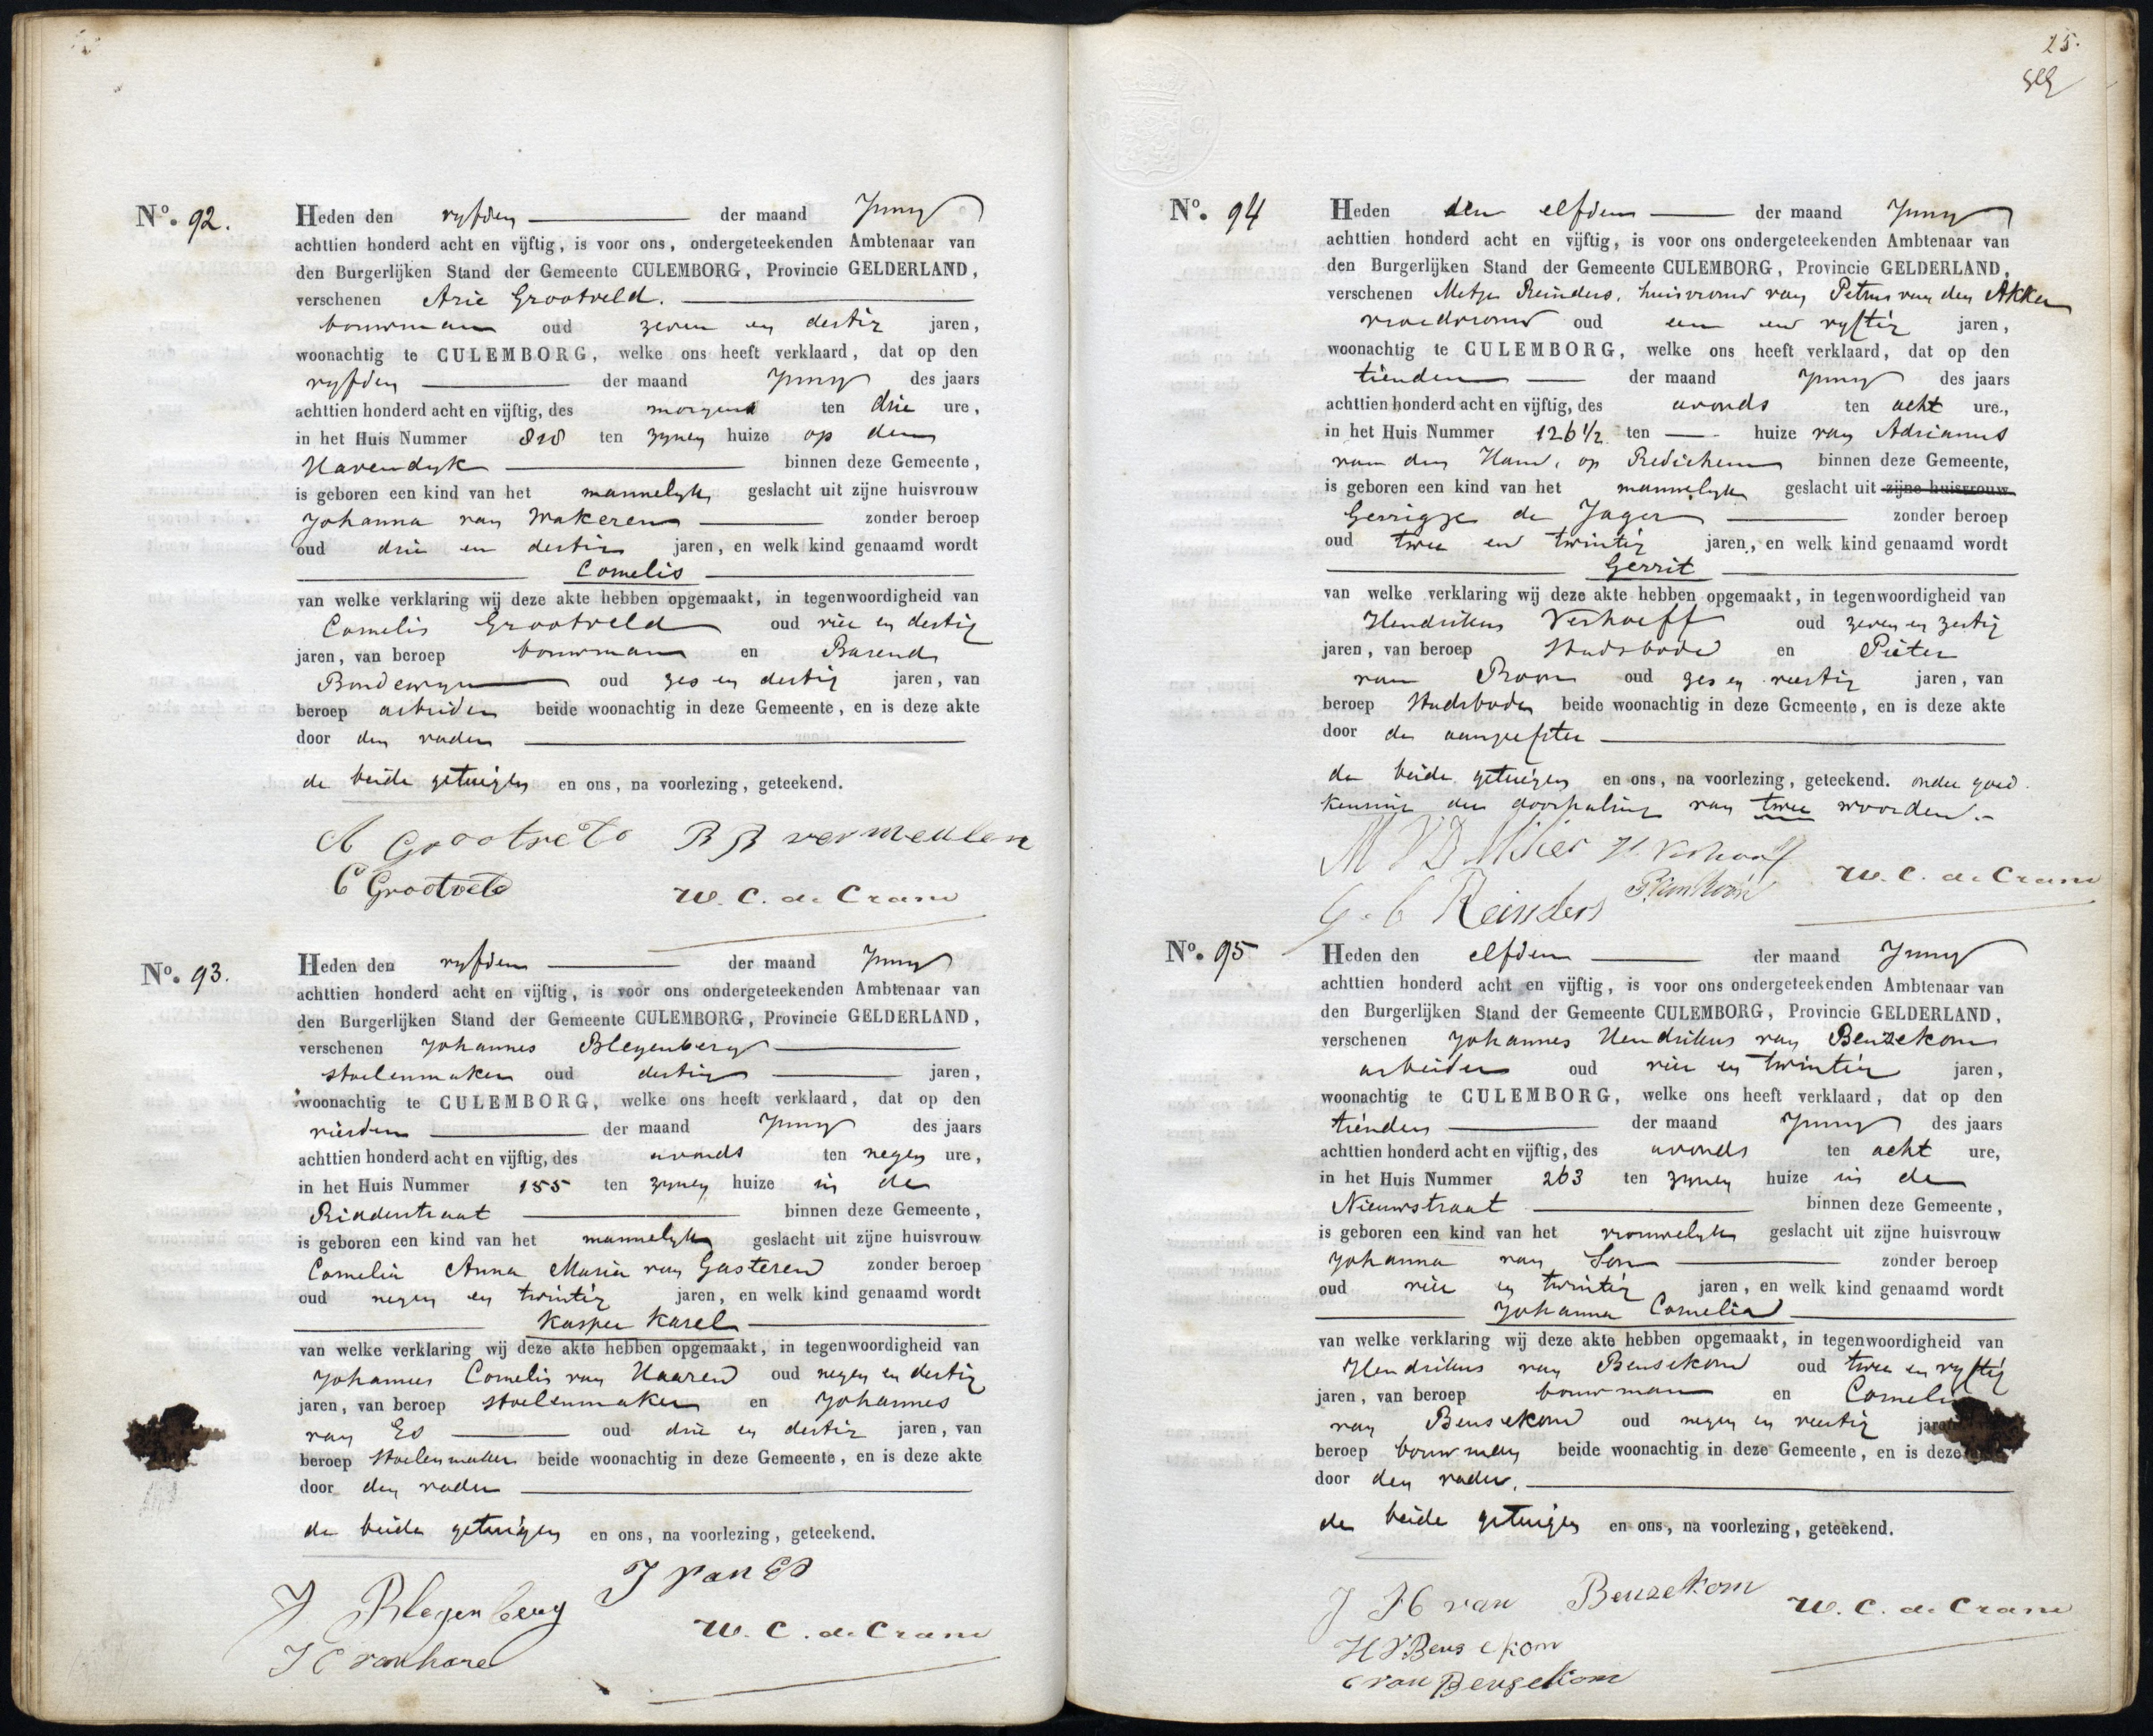 No. 92.
Heden den vyfden der maand Juny
achttien honderd acht en vijftig, is voor ons, ondergeteekenden Ambtenaar van
den Burgerlijken Stand der Gemeente CULEMBORG, Provincie GELDERLAND,
verschenen Arie Grootveld.
bouwman oud zeven en dertig jaren,
woonachtig te CULEMBORG, welke ons heeft verklaard, dat op den
vyfden der maand Juny des jaars
achttien honderd acht en vijftig, des morgens ten drie ure,
in het Huis Nummer 818 ten zynen huize op den
Havendyk binnen deze Gemeente,
is geboren een kind van het mannelyk geslacht uit zijne huisvrouw
Johanna van Wakeren zonder beroep
oud drie en dertig jaren, en welk kind genaamd wordt
Cornelis
van welke verklaring wij deze akte hebben opgemaakt, in tegenwoordigheid van
Cornelis Grootveld oud vier en dertig
jaren, van beroep bouwman en Barend
oud zes en dertig jaren, van
beroep arbeider beide woonachtig in deze Gemeente, en is deze akte
door den vader
de beide getuigen en ons, na voorlezing, geteekend.
A Grootveld B B vermeulen
C Grootveld W. C. de Crane
No. 93.
Heden den vyfden der maand Juny
achttien honderd acht en vijftig, is voor ons ondergeteekenden Ambtenaar van
den Burgerlijken Stand der Gemeente CULEMBORG, Provincie GELDERLAND,
verschenen Johannes Blegenberg
stoelenmaker oud dertig jaren,
woonachtig te CULEMBORG, welke ons heeft verklaard, dat op den
vierden der maand Juny des jaars
achttien honderd acht en vijftig, des avonds ten negen ure,
in het Huis Nummer 155 ten zynen huize in de
Ridderstraat binnen deze Gemeente,
is geboren een kind van het mannelyk geslacht uit zijne huisvrouw
Cornelia Anna Maria van Gasteren zonder beroep
oud negen en twintig jaren, en welk kind genaamd wordt
Kasper Karel
van welke verklaring wij deze akte hebben opgemaakt, in tegenwoordigheid van
Johannes Cornelis van Haaren oud negen en dertig
jaren, van beroep stoelenmaker en Johannes
van Es oud drie en dertig jaren, van
beroep stoelenmaker beide woonachtig in deze Gemeente, en is deze akte
door den vader
de beide getuigen en ons, na voorlezing, geteekend.
J van Es
J. Blegenberg
W. C. de Crane
J C van hare
25.
No. 94
Heden den elfden der maand Juny
achttien honderd acht en vijftig, is voor ons ondergeteekenden Ambtenaar van
den Burgerlijken Stand der Gemeente CULEMBORG, Provincie GELDERLAND,
verschenen Metje Reinders, huisvrouw van Petrus van den Akker
vroedvrouw oud een en vyftig jaren,
woonachtig te CULEMBORG, welke ons heeft verklaard, dat op den
tienden der maand Juny des jaars
achttien honderd acht en vijftig, des avonds ten acht ure.,
in het Huis Nummer 126 1/2 ten huize van Adrianus
van den Ham, op Redichem binnen deze Gemeente,
is geboren een kind van het mannelyk geslacht uit zijne huisvrouw
Gerrigje de Jager zonder beroep
oud twee en twintig jaren, en welk kind genaamd wordt
Gerrit
van welke verklaring wij deze akte hebben opgemaakt, in tegenwoordigheid van
Hendrikus Verhoeff oud zeven en zestig
jaren, van beroep Stadsbode en Pieter
van Room oud zes en veertig jaren, van
beroep Stadsbode beide woonachtig in deze Gemeente, en is deze akte
door de aangeefster
de beide getuigen en ons, na voorlezing, geteekend. onder goed
keuring der doorhaling van twee woorden.
M V D H. Verhoeff
W. C. de Crane
Reinders
No. 95
Heden den elfden der maand Juny
achttien honderd acht en vijftig, is voor ons ondergeteekenden Ambtenaar van
den Burgerlijken Stand der Gemeente CULEMBORG, Provincie GELDERLAND,
verschenen Johannes Hendrikus van Beuzekom
arbeider oud vier en twintig jaren,
woonachtig te CULEMBORG, welke ons heeft verklaard, dat op den
tienden der maand Juny des jaars
achttien honderd acht en vijftig, des avonds ten acht ure,
in het Huis Nummer 263 ten zynen huize in de
Nieuwstraat binnen deze Gemeente,
is geboren een kind van het vrouwelyk geslacht uit zijne huisvrouw
Johanna van Son zonder beroep
oud vier en twintig jaren, en welk kind genaamd wordt
Johanna Cornelia
van welke verklaring wij deze akte hebben opgemaakt, in tegenwoordigheid van
Hendrikus van Beusekom oud twee en vyftig
jaren, van beroep bouwman en Cornelis
van Beusekom oud negen en veertig
beroep bouwman beide woonachtig in deze Gemeente, en is deze
door den vader.
de beide getuigen en ons, na voorlezing, geteekend.
J H van Beuzekom W. C. de Crane
H V Beusekom
C van Beusekom